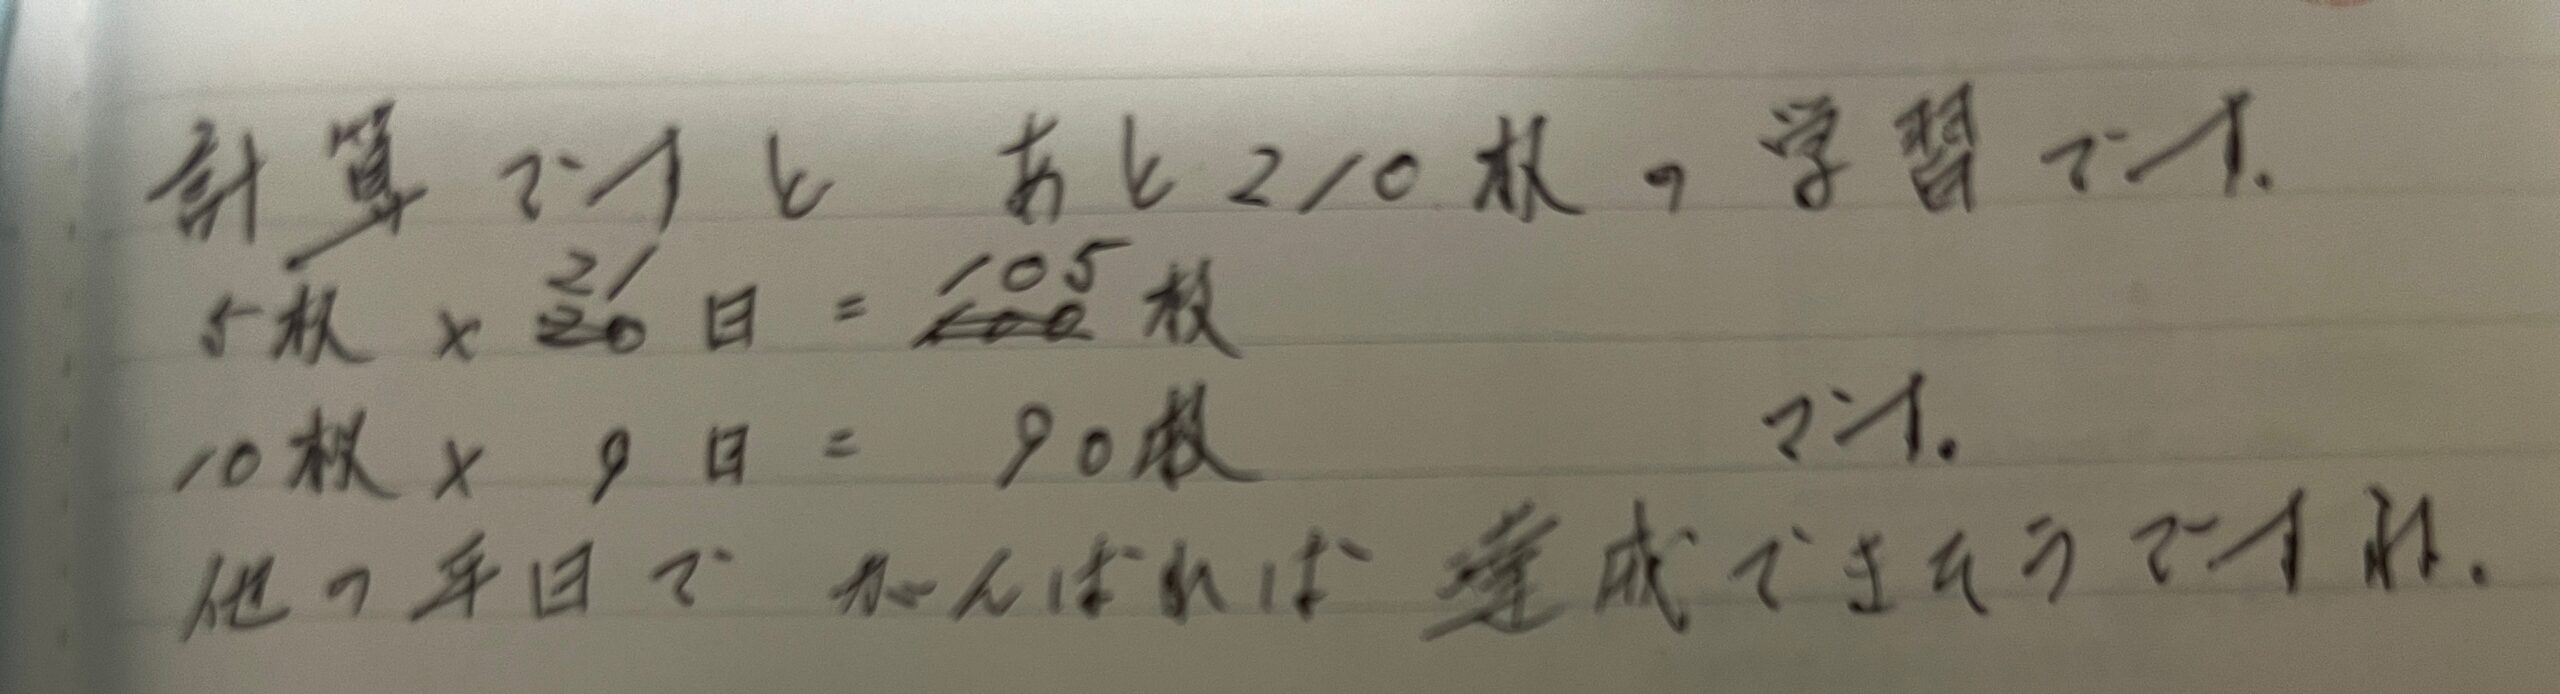 計算ですと あと210枚の学習です。
5枚×21日=105枚
10枚×9日= 90枚 です。
他の平日でがんばれば達成できそうですね。